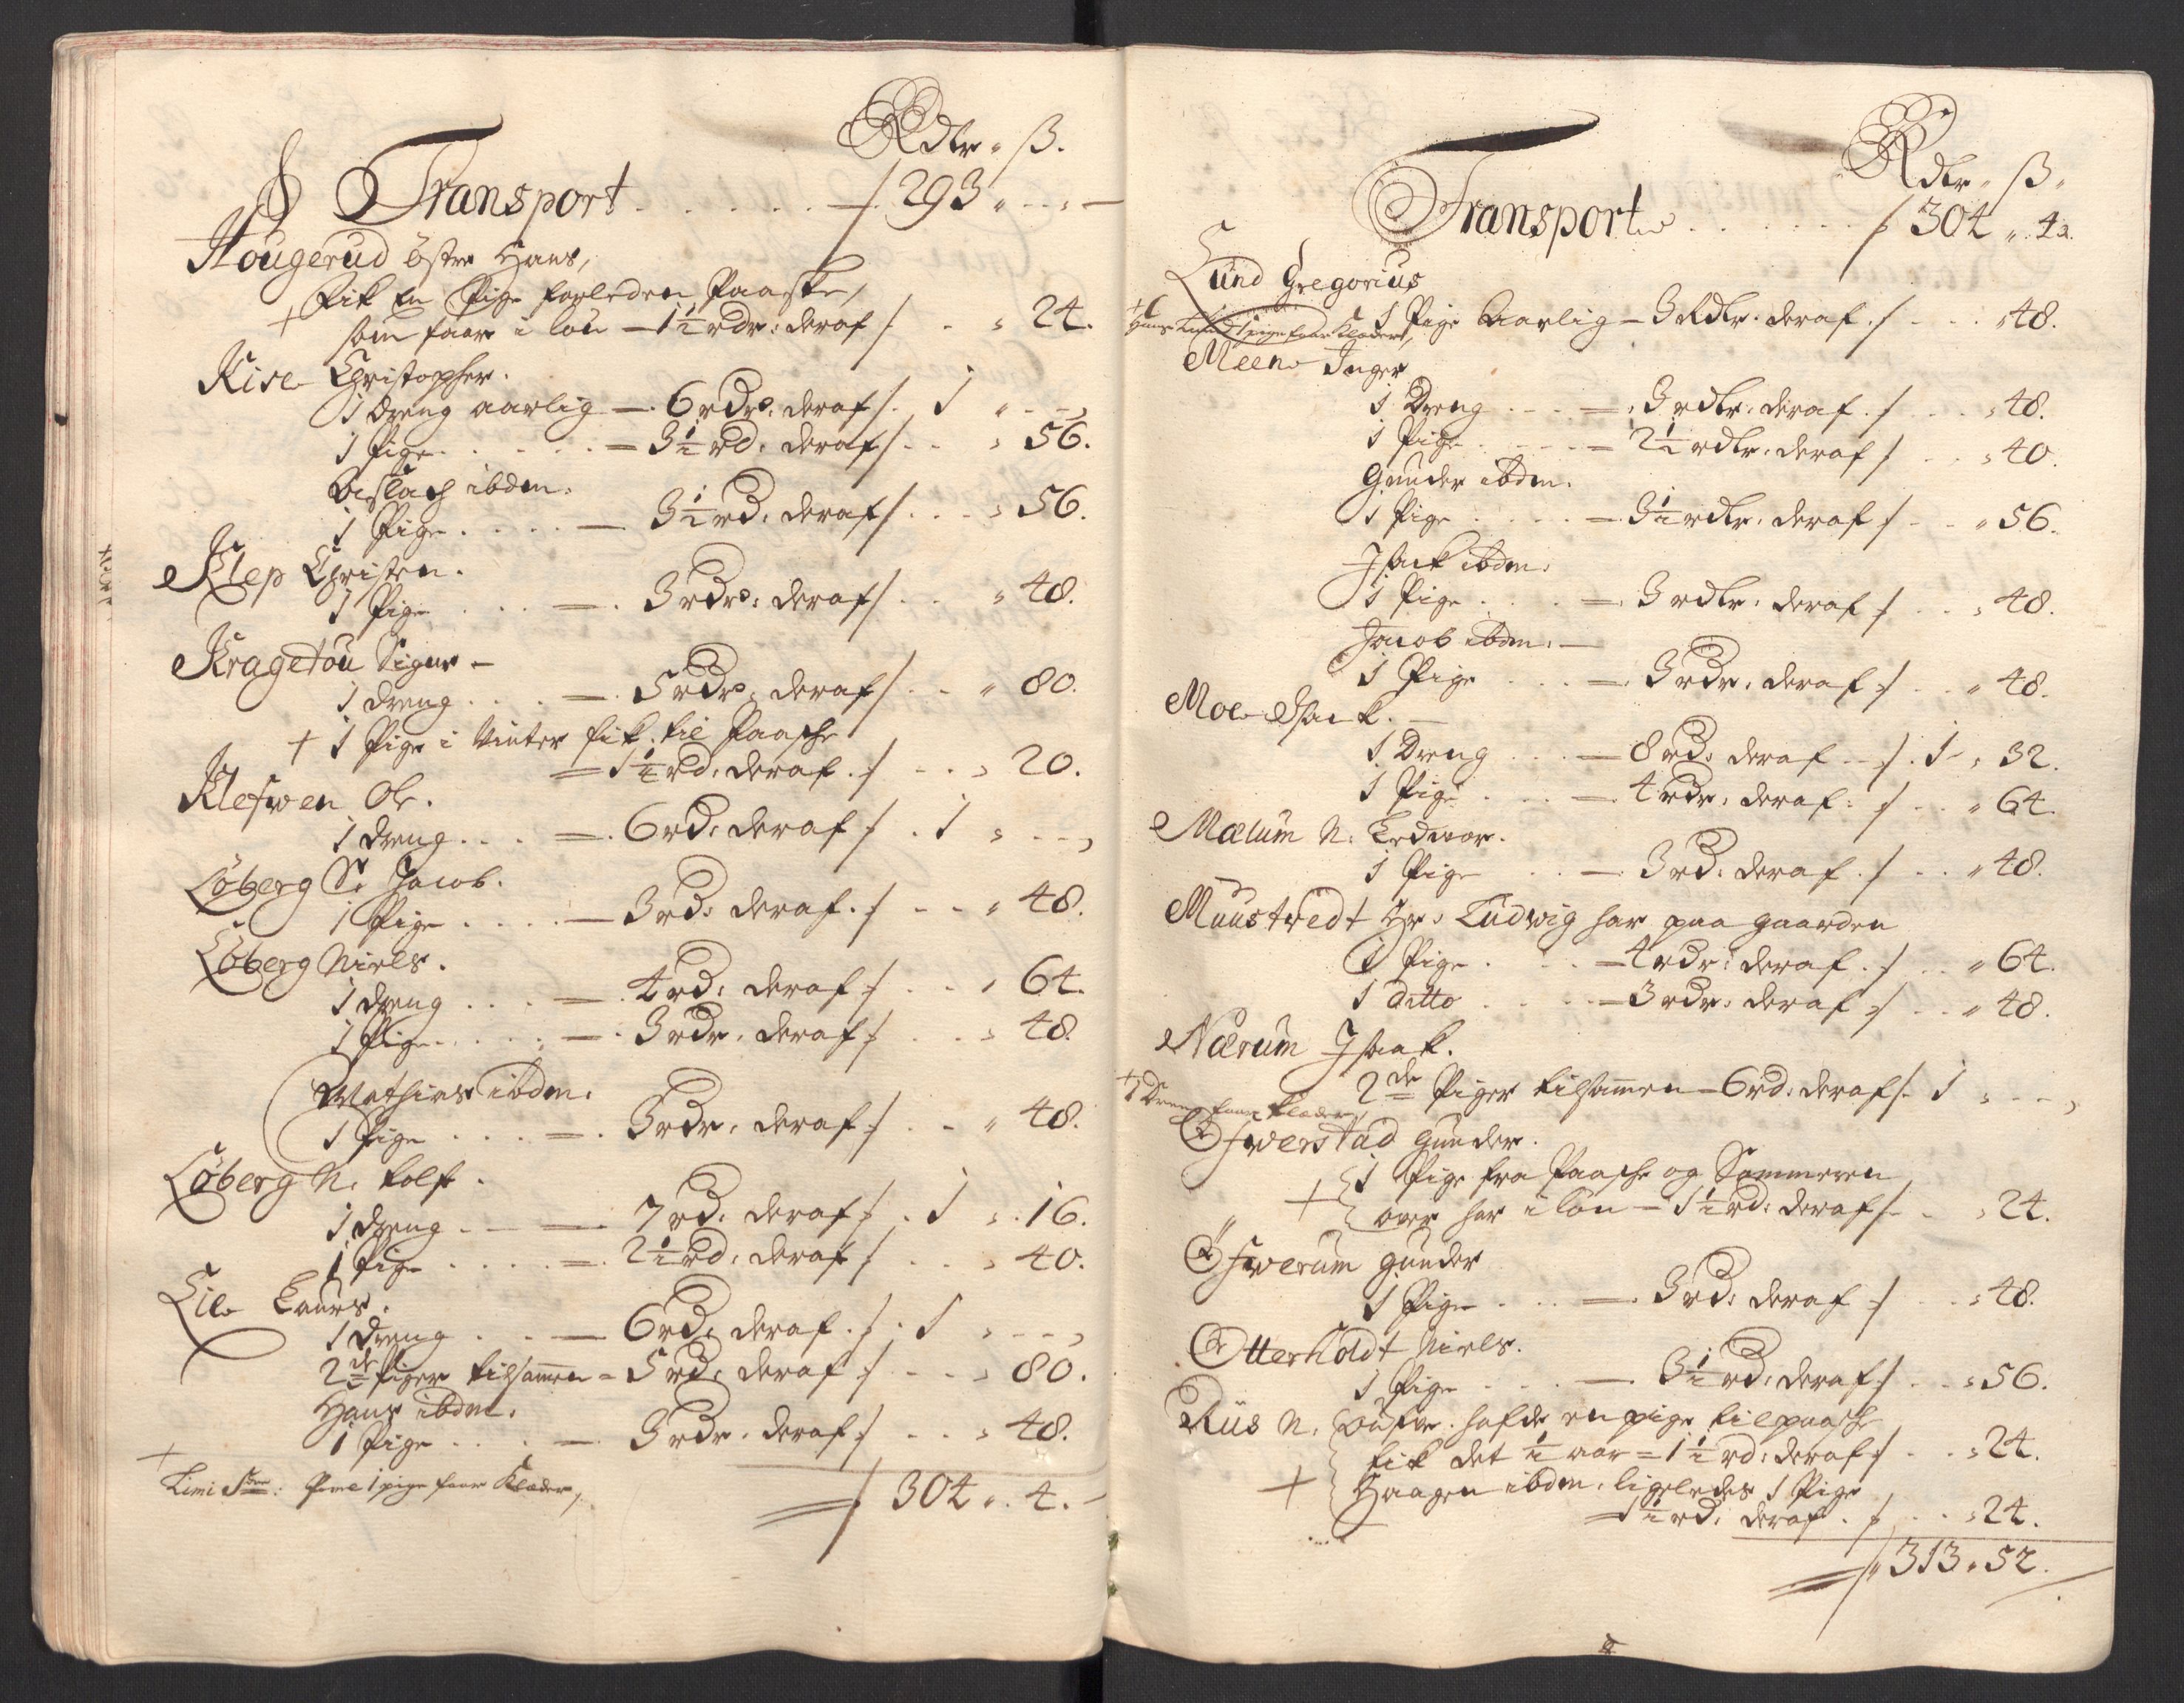 Rdlr. ß.
Transport . . . . . . 293 „ - - „ -
Hougerud östre Hans,
+ Fik En Pige forleden Paaske,
som faar i lön - 1½ rdr: deraf . . „ 24.
Rise Christopher.
1 dreng aarlig - 6 rdr: deraf . 1 „ - - „
1 Pige . . . . = 3½ rd: deraf . . „ 56.
Aslach ibdm:
1 Pige . . . . - 3½ rd: deraf . . . „ 56.
Klep Christen.
1 Pige . . . = 3 rdr: deraf . . „ 48.
Kragetou Sigur -
1 dreng . . . = 5 rdr: deraf . . „ 80.
+ 1 Pige i Vinter fik til Paasche
= 1¼ rd: deraf . . . „ 20.
Klefwen Ole.
1 dreng . . . = 6 rd: deraf . 1 „ - - „
Löberg S: Jacob.
1 Pige . . . . - 3 rd: deraf . . . „ 48.
Löberg Niels.
1 dreng . . . = 4 rd: deraf . . „ 64.
1 Pige . . . . = 3 rdr. deraf . . „ 48.
Mathias ibdm.
1 Pige . . . = 3 rdr. deraf . . „ 48.
Löberg N: Rolf.
1 dreng . . - 7 rd: deraf . 1 „ 16.
1 Pige . . . . = 2½ rd: deraf . . . „ 40.
Lie Laurs.
1 dreng . . - 6 rd: deraf . 1 „ - - „
2de Piger tilsamen = 5 rd: deraf . . . „ 80.
Hans ibdm.
1 Pige . . . - 3 rdr. deraf . . . „ 48.
+ 1 pige faar Klæder,
304 „ 4. -
Rdlr. ß.
Transport . . . . . . 304 „ 4.
Lund Gregorius
1 Pige Aarlig - 3 Rdlr. deraf . . . „ 48.
+ Hans Lund 1 pige faar Klæder,
Meen Inger
1 Dreng . . . = 3 rdlr: deraf . . . „ 48.
1 Pige . . . . = 2½ rdlr: deraf . . „ 40.
Gunder ibdm.
1 Pige . . . . = 3½ rdlr. deraf . . „ 56.
Isack ibdm:
1 Pige . . . = 3 rdlr: deraf . . . „ 48.
Jacob ibdm: -
1 Pige . . . = 3 rdr. deraf . . „ 48.
Moe Isack. -
1 Dreng . . . - 8 rd: deraf . . 1 „ 32.
1 Pige . . . - 4 rdr. deraf: . . „ 64.
Mælum N:
1 Pige . . - 3 rd: deraf . . . „ 48.
Muustvedt Hr: Ludwig har paa gaarden
1 Pige . . . - 4 rdr: deraf . . . „ 64.
1 ditto . . . . - 3 rdr: deraf . . „ 48.
Nærum Isaak.
2de Piger tilsamen - 6 rd: deraf . 1 „ - - „
+ 1 Dreng faar klæder,
Öfwerstad Gunder.
1 Pige fra Paasche og Sommeren
+ over har i lön - 1½ rd: deraf . . „ 24.
Öfwerum Gunder
1 Pige . . . = 3 rd: deraf . . . „ 48.
Otterholdt Niels.
1 Pige . . . - 3½ rd: deraf . . . „ 56.
Riis N. hafde en pige til paasche
fik det ½ aar = 1½ rd: deraf . . . „ 24.
+ Haagen ibdm. ligeledes 1 Pige
= 1½ rd: deraf . . . „ 24.
313 „ 52.